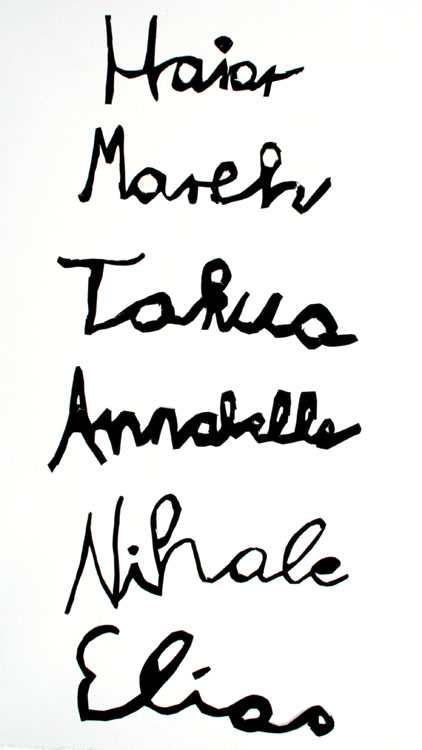 Haiar
Mareks
Takua
Annabelle
Nihale
Elias